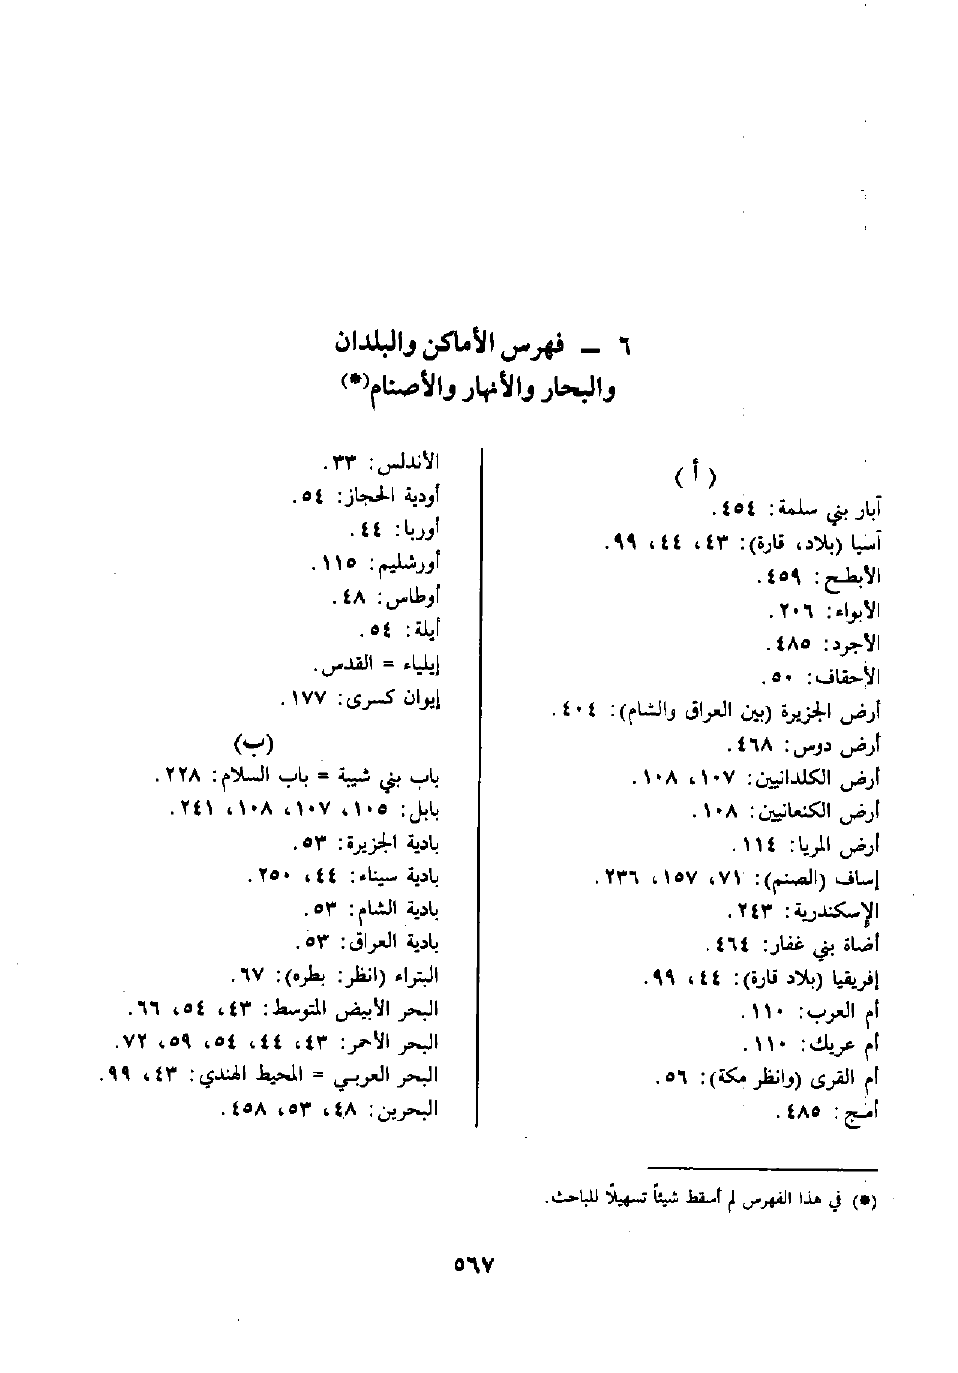 ٦ – فهرس الأماكن والبلدان
والبحار والأنهار والأصنام(*)
(أ)
آبار بني سلمة: ٤٥٤.
آسيا (بلاد، قارة): ٤٣، ٤٤، ٩٩.
الأبطح: ٤٥٩.
الأبواء: ٢٠٦.
الأجرد: ٤٨٥.
الأحقاف: ٥٠.
أرض الجزيرة (بين العراق والشام): ٤٠٤.
أرض دوس: ٤٦٨.
أرض الكلدانيين: ١٠٧، ١٠٨.
أرض الكنعانيين: ١٠٨.
أرض المريا: ١١٤.
إساف (الصنم): ٧١، ١٥٧، ٢٣٦.
الإسكندرية: ٢٤٣.
أضاة بني غفار: ٤٦٤.
إفريقيا (بلاد قارة): ٤٤، ٩٩.
أم العرب: ١١٠.
أم عريك: ١١٠.
أم القرى (وانظر مكة): ٥٦.
أمج: ٤٨٥.
الأندلس: ٣٣.
أودية الحجاز: ٥٤.
أوربا: ٤٤.
أورشليم: ١١٥.
أوطاس: ٤٨.
أيلة: ٥٤.
إيلياء = القدس.
إيوان كسرى: ١٧٧.
(ب)
باب بني شيبة = باب السلام: ٢٢٨.
بابل: ١٠٥، ١٠٧، ١٠٨، ٢٤١.
بادية الجزيرة: ٥٣.
بادية سيناء: ٤٤، ٢٥٠.
بادية الشام: ٥٣.
بادية العراق: ٥٣.
البتراء (انظر: بطره): ٦٧.
البحر الأبيض المتوسط: ٤٣، ٥٤، ٦٦.
البحر الأحمر: ٤٣، ٤٤، ٥٤، ٥٩، ٧٢.
البحر العربي = المحيط الهندي: ٤٣، ٩٩.
البحرين: ٤٨، ٥٣، ٤٥٨.
(*) في هذا الفهرس لم أسقط شيئاً تسهيلاً للباحث.
٥٦٧